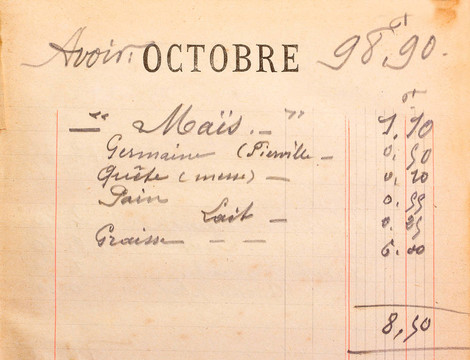 Avoir: OCTOBRE 98,90.
— " Maïs. — " 1,10
Germaine (Fierville — 0,50
Quête (messe) — 0,20
Pain 0.55
Lait — 0.25
Graisse — — 6.00
8,50